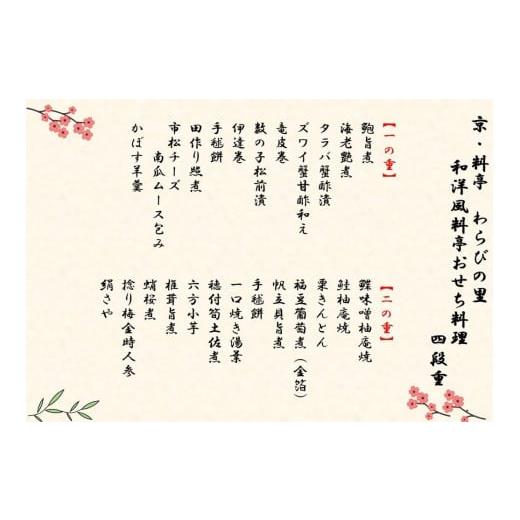 京・料亭 わらびの里
和洋風料亭おせち料理
四段重
【一の重】
鮑旨煮
海老艶煮
タラバ蟹酢漬
ズワイ蟹甘酢和え
竜皮巻
数の子松前漬
伊達巻
手毬餅
田作り照煮
市松チーズ
南瓜ムース包み
かぼす羊羹
【二の重】
鰈味噌柚庵焼
鮭柚庵焼
栗きんとん
福豆葡萄煮(金箔)
帆立貝旨煮
手毬餅
一口焼き湯葉
穂付筍土佐煮
六方小芋
椎茸旨煮
蛸桜煮
捻り梅金時人参
絹さや